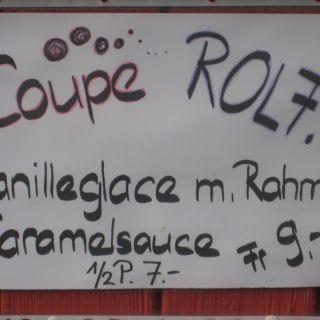 Coupe ROLF.
Vanilleglace m. Rahm
Caramelsauce Fr 9.-
1/2 P. 7.-